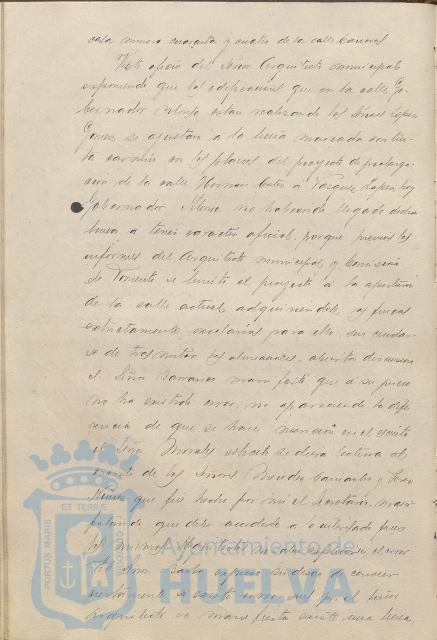 casa número cuarenta y cuatro de la calle Canovas
Visto oficio del Señor Arquitecto municipal
exponiendo que las edificaciones que en la calle Go-
bernador Alonso estan realizando los Señores Lopez
Gomez se ajustan a la linea marcada con tin-
ta carmin en los planos del proyecto de prolonga-
ción de la calle Hernan Cortes á Vazquez Lopez, hoy
Gobernador Alonso no habiendo llegado dicha
linea á tener caracter oficial, porque previos los
informes del Arquitecto municipal y Comisión
de Fomento se limitó el proyecto á la apertura
de la calle actual adquiriendose las fincas
estrictamente necesarias para ello, sin cuidar-
se de tramitar las alineaciones, abierta discusion
el Señor Barranco manifestó que á su juicio
no ha existido error, no apareciendo la dife-
rencia de que se hace mención en el escrito
el Señor Morales solicitó se diera lectura al
escrito de los Señores
que fué hecho por mi el Secretario, mani-
festando que debe accederse a lo interesado pues
los mismos
el Señor expuso sus deseos de conocer
ciertamente si existe error pues por el Señor
Arquitecto se manifiesta existe una linea,
PORTUS MARIS
ET TERRAE
CUSTODIA
Ayuntamiento de
HUELVA